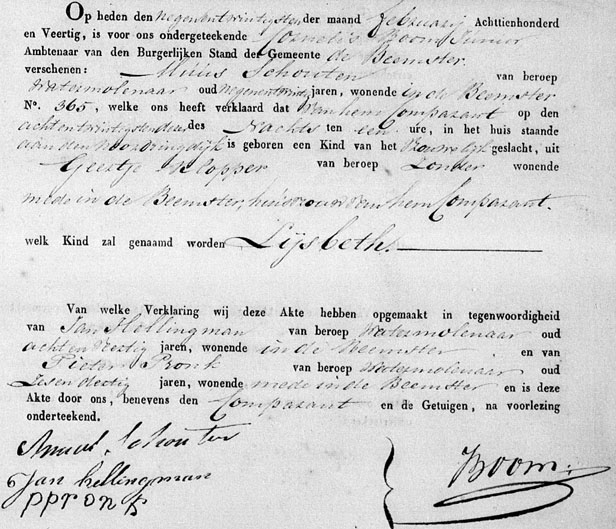 Op heden den negenentwintigsten der maand februarij Achttienhonderd
en Veertig, is voor ons ondergeteekende Cornelis Boom Junior
Ambtenaar van den Burgerlijken Stand der Gemeente de Beemster.
verschenen: Schouten van beroep
Watermolenaar oud negenentwintig jaren, wonende in de Beemster
N°. 365, welke ons heeft verklaard dat van hem Comparant op den
achtentwintigsten dezer des Nachts ten een ure, in het huis staande
aan den Noorddringdijk is geboren een Kind van het Vrouwelijk geslacht, uit
Geertje Klopper van beroep Zonder wonende
mede in de Beemster, huisvrouw van hem Comparant.
welk Kind zal genaamd worden Lijsbeth.
Van welke Verklaring wij deze Akte hebben opgemaakt in tegenwoordigheid
van Jan Hellingman van beroep Watermolenaar oud
achtenveertig jaren, wonende in de Beemster en van
Pieter Pronk van beroep Watermolenaar oud
Zesendertig jaren, wonende mede in de Beemster en is deze
Akte door ons, benevens den Comparant en de Getuigen, na voorlezing
onderteekend.
Schouten
Jan hellingman
ppronk
Boom